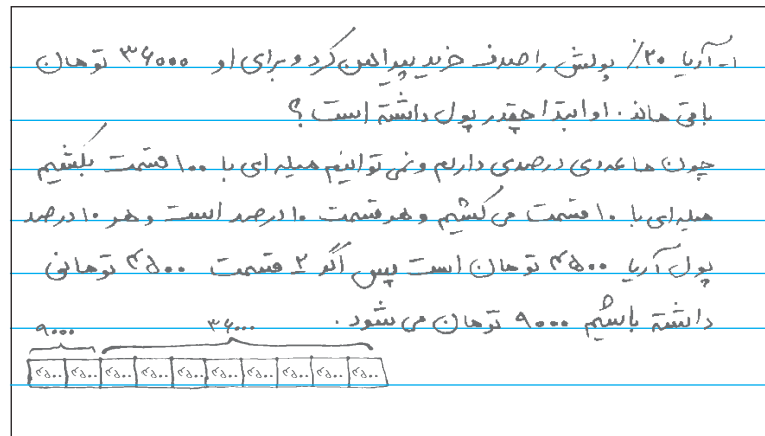 ۱- آریا ۲۰٪ پولش را صرف خرید پیراهن کرد و برای او ۳۶۰۰۰ تومان
باقی ماند. او ابتدا چقدر پول داشته است؟
چون ما عددی درصدی داریم و نمی توانیم میله ای با ۱۰۰ قسمت بکشیم
میله ای با ۱۰ قسمت می کشیم و هر قسمت ۱۰ درصد است و هر ۱۰ درصد
پول آریا ۴۵۰۰ تومان است پس اگر ۲ قسمت ۴۵۰۰ تومانی
داشته باشیم ۹۰۰۰ تومان می شود.
۹۰۰۰ ۳۶۰۰۰
۴۵۰۰ ۴۵۰۰ ۴۵۰۰ ۴۵۰۰ ۴۵۰۰ ۴۵۰۰ ۴۵۰۰ ۴۵۰۰ ۴۵۰۰ ۴۵۰۰